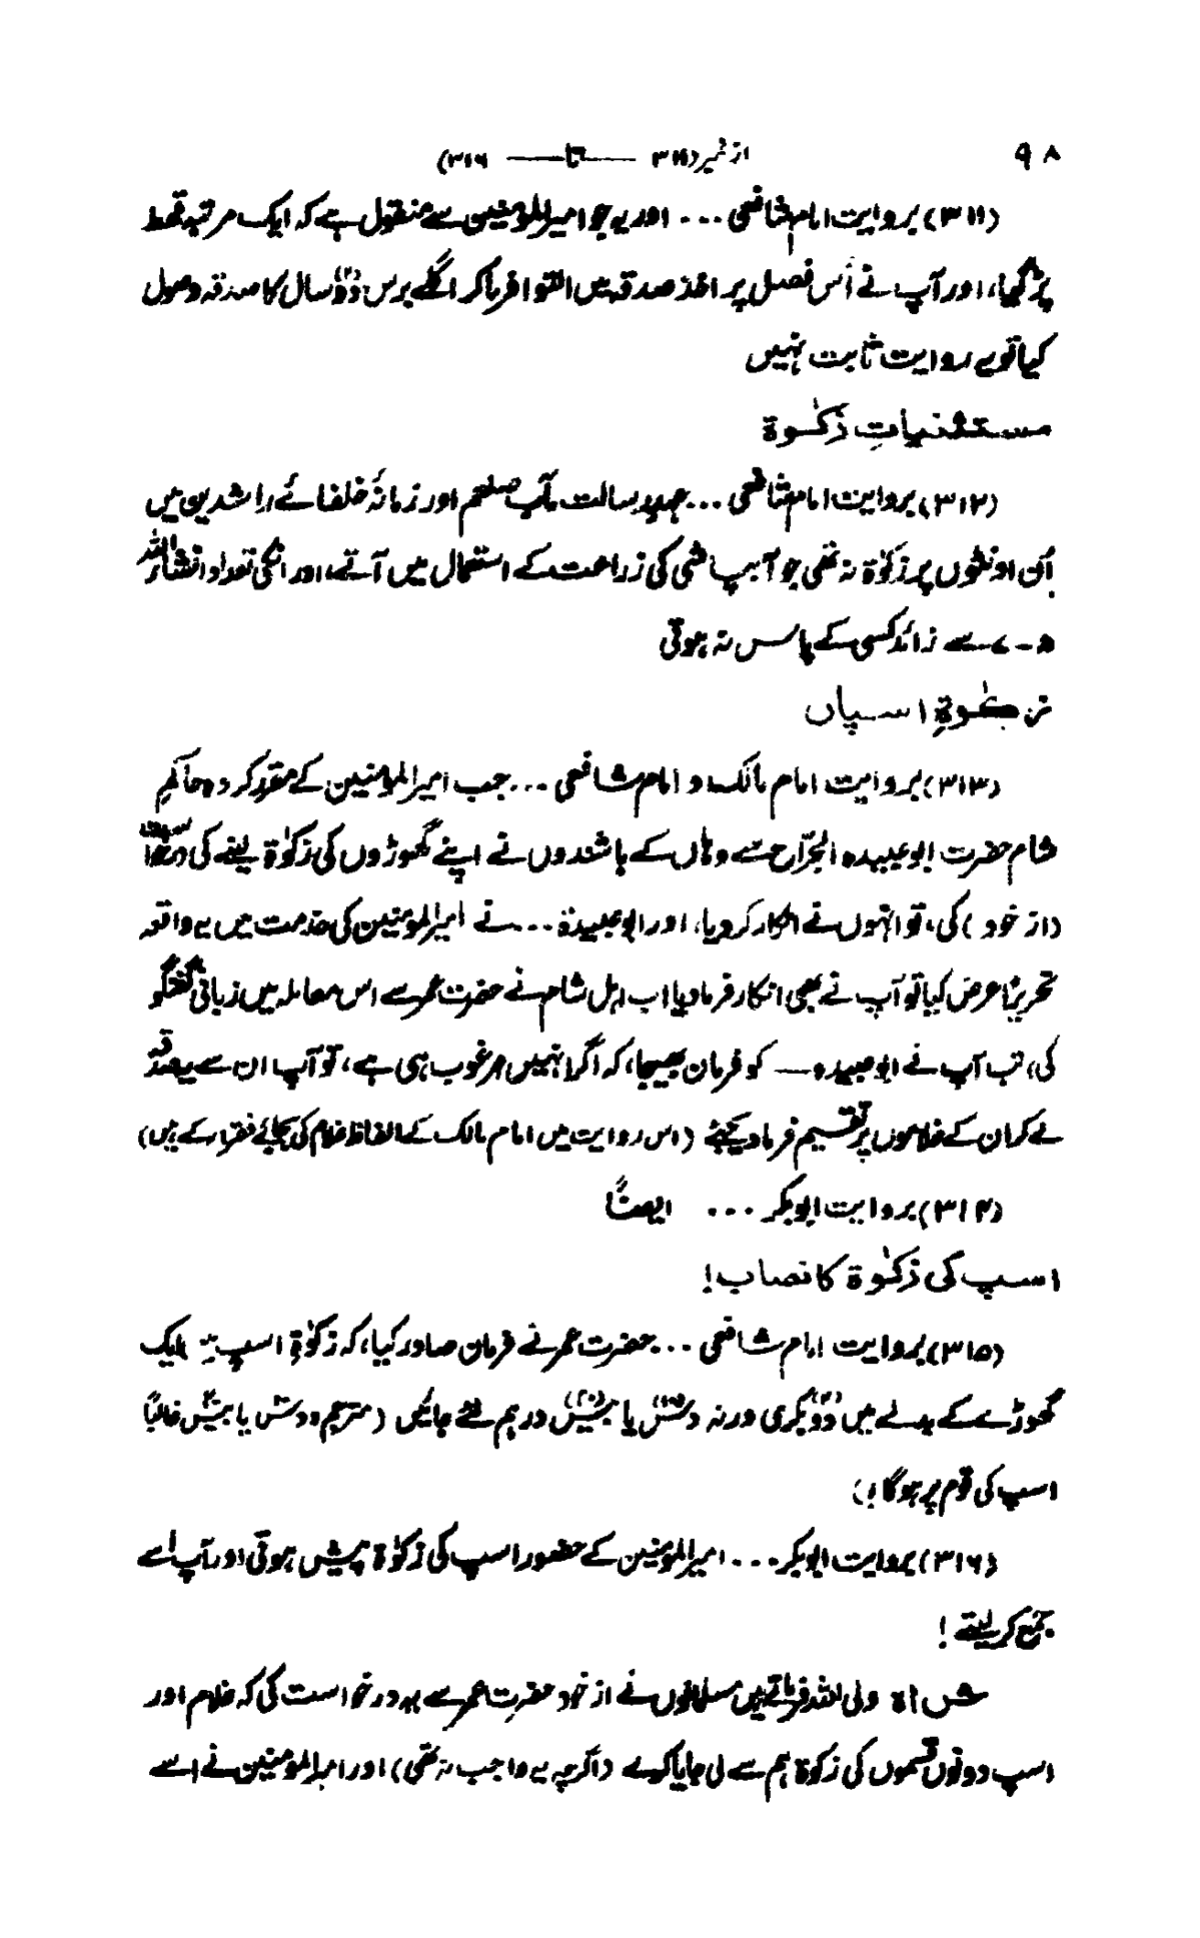 ۹۸ از نمبر (۳۱۱ —— تا —— ۳۱۶)
(۳۱۱) بروایت امام شافعی ... اور یہ جو امیر المؤمنین سے منقول ہے کہ ایک مرتبہ قحط
پڑ گیا، اور آپ نے اُس فصل پر اخذ صدقہ میں التوا فرما کر اگلے برس دو۲ سال کا صدقہ وصول
کیا تو یہ روایت ثابت نہیں
مستثنیاتِ زکوٰۃ
(۳۱۲) بروایت امام شافعی ... عہدِ رسالت مآب صلعم اور زمانۂ خلفائے راشدین میں
اُن اونٹوں پر زکوٰۃ نہ تھی جو آبپاشی کی زراعت کے استعمال میں آتے، اور انکی تعداد انشاء اللہ
۵-۷ سے زائد کسی کے پاس نہ ہوتی
زکوٰۃِ اسپاں
(۳۱۳) بروایت امام مالک و امام شافعی ... جب امیر المؤمنین کے مقرر کردہ حاکمِ
شام حضرت ابو عبیدہ الجرّاح سے وہاں کے باشندوں نے اپنے گھوڑوں کی زکوٰۃ لینے کی درخواست
(از خود) کی، تو انہوں نے انکار کر دیا، اور ابو عبیدۃ ... نے امیر المؤمنین کی خدمت میں یہ واقعہ
تحریرًا عرض کیا تو آپ نے بھی انکار فرما دیا اب اہل شام نے حضرت عمر سے اس معاملہ میں زبانی گفتگو
کی، تب آپ نے ابو عبیدہ — کو فرمان بھیجا، کہ اگر انہیں مرغوب ہی ہے، تو آپ ان سے یہ صدقہ
لے کر ان کے غلاموں پر تقسیم فرما دیجئے (اس روایت میں امام مالک کے الفاظ غلام کی بجائے فقراء کے ہیں)
(۳۱۴) بروایت ابوبکر ... ایضًا
اسپ کی زکوٰۃ کا نصاب!
(۳۱۵) بروایت امام شافعی ... حضرت عمر نے فرمان صادر کیا، کہ زکوٰۃِ اسپ میں ایک
گھوڑے کے بدلے میں دو(۲) بکری ورنہ دس(۱۰) یا بیس(۲۰) درہم لئے جائیں (مترجم و دس یا بیس غالبًا
اسپ کی قوم پر ہوگا!)
(۳۱۶) بروایت ابوبکر ... امیر المؤمنین کے حضور اسپ کی زکوٰۃ پیش ہوتی اور آپ اُسے
جمع کر لیتے!
شاہ ولی اللہ فرماتے ہیں مسلمانوں نے از خود حضرت عمر سے یہ درخواست کی کہ غلام اور
اسپ دونوں قسموں کی زکوٰۃ ہم سے لی جایا کرے (اگرچہ یہ واجب نہ تھی) اور امیر المؤمنین نے اسے